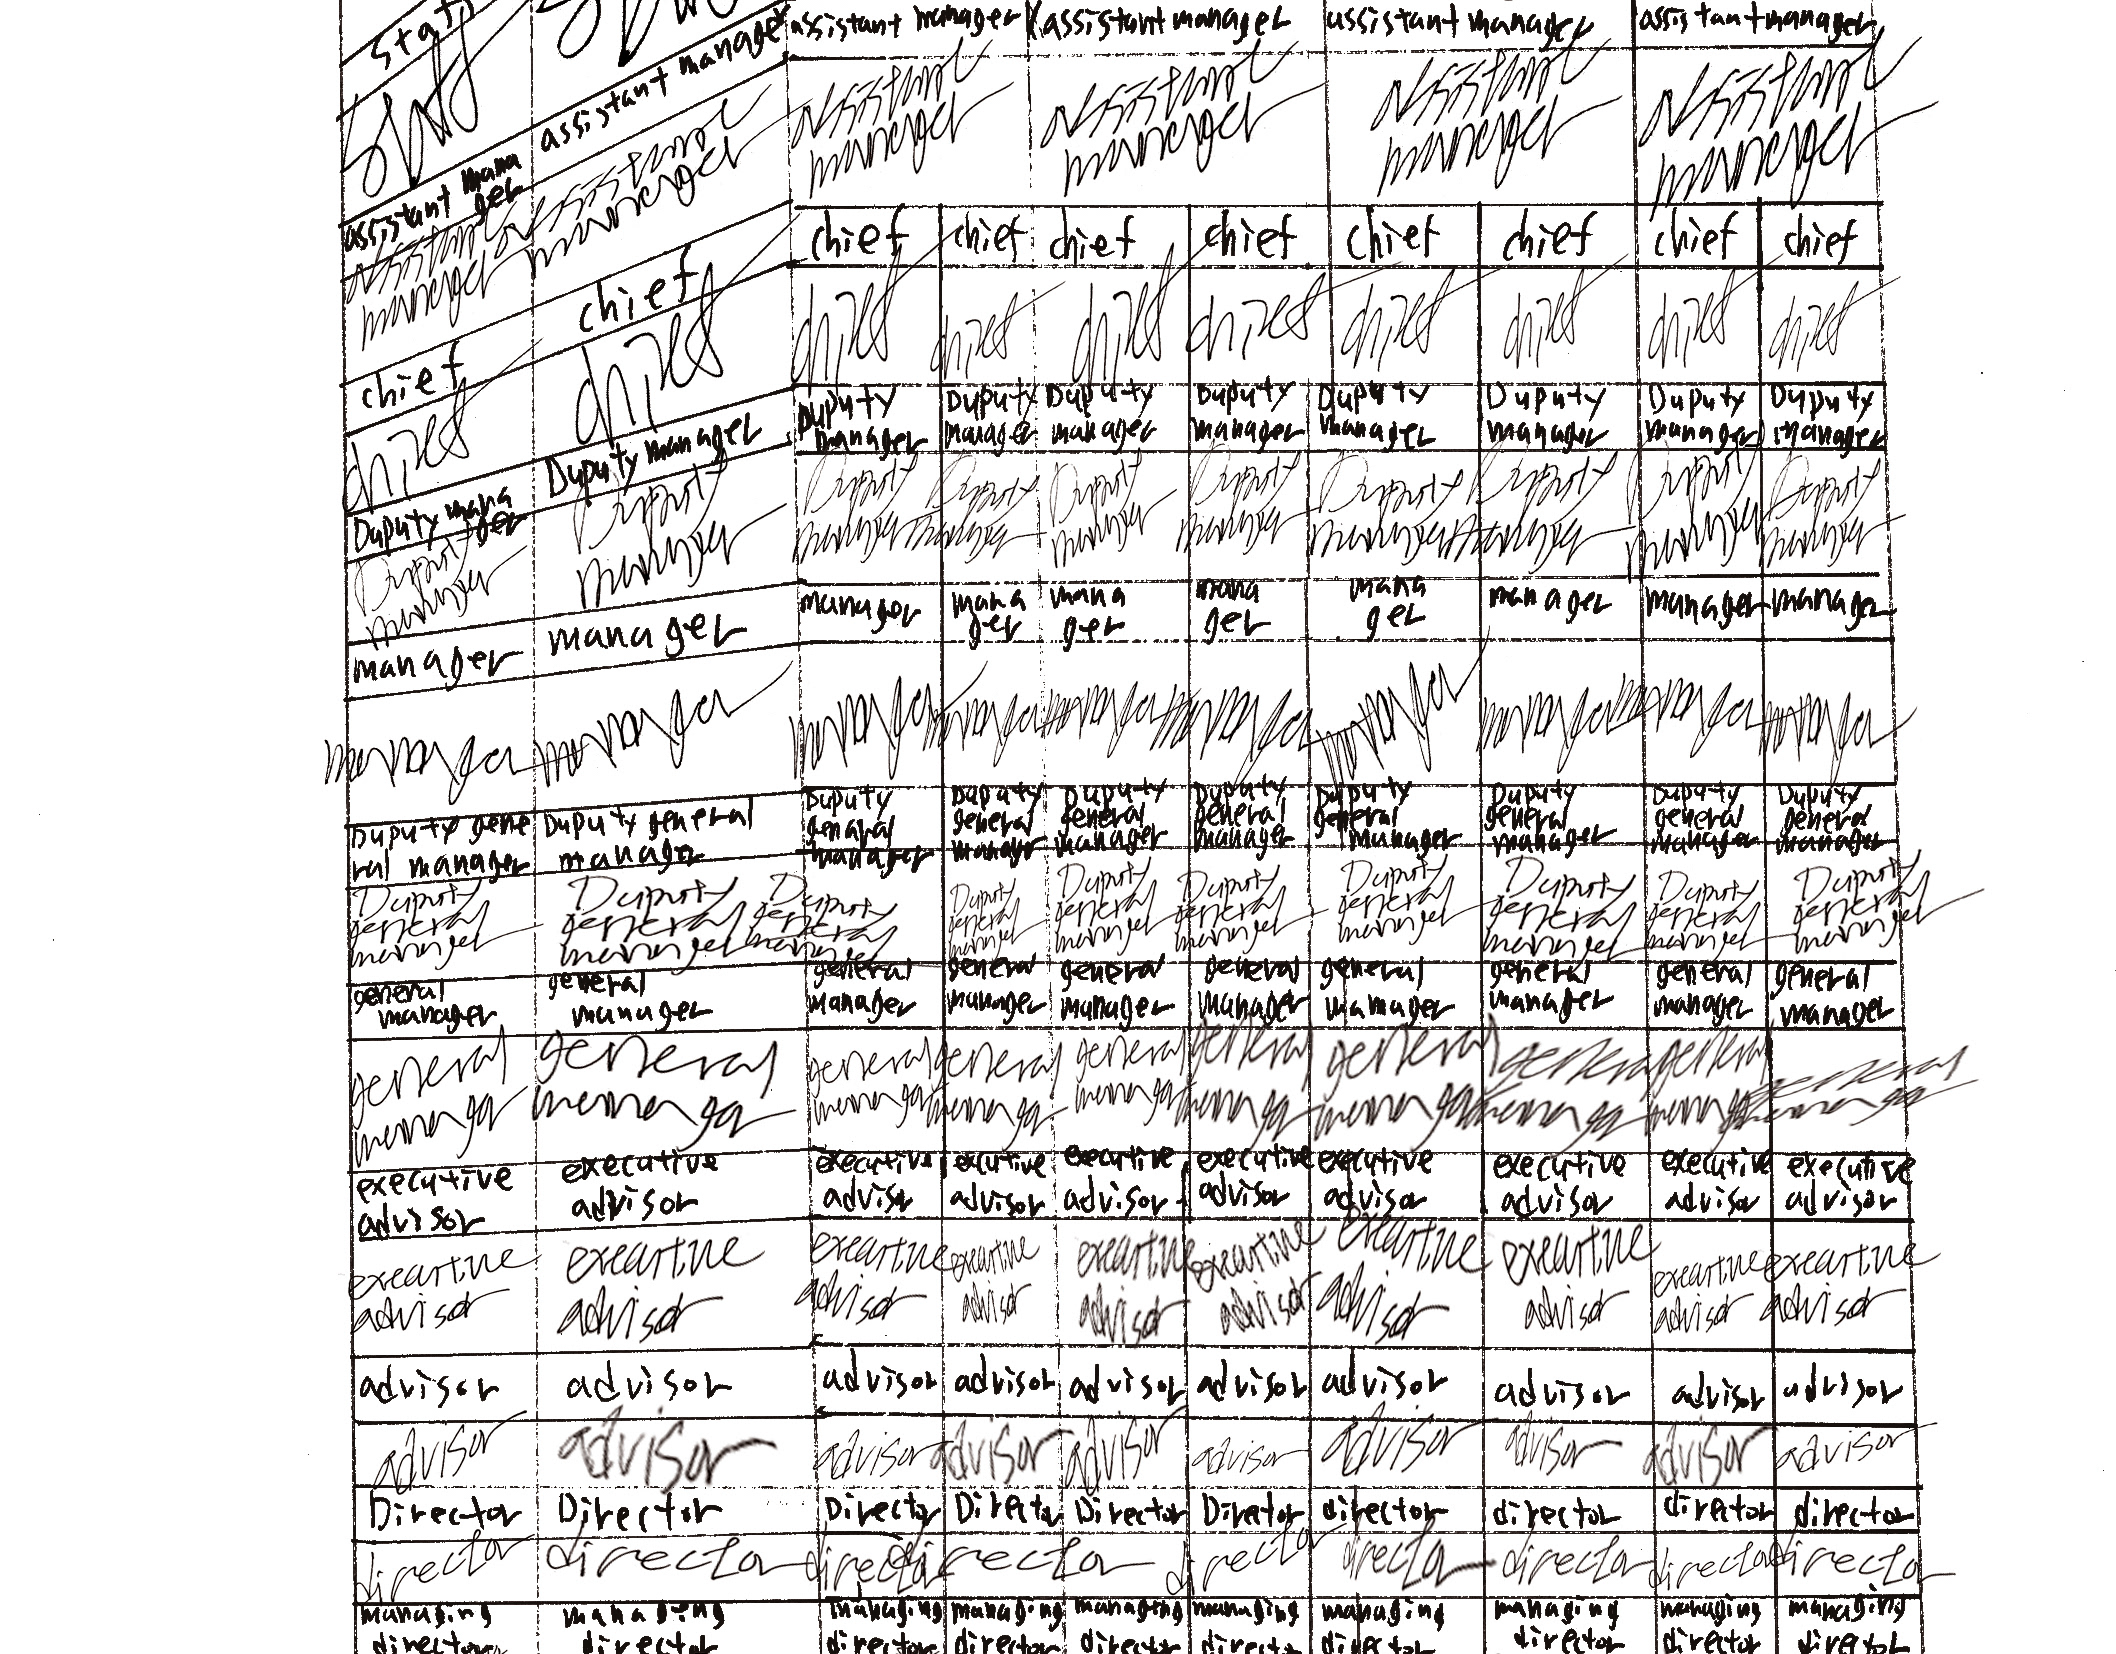 assistant manager assistant manager assistant manager assistant manager
assistant manager
assistant mana
ger
assistant manager assistant manager assistant manager assistant manager
assistant manager assistant manager
chief chief chief chief chief chief chief chief
chief
chief
chief chief chief chief chief chief chief chief
chief
chief
Duputy Duputy Duputy Duputy Duputy Duputy Duputy Duputy
manager manager manager manager manager manager manager manager
Duputy manager
Duputy mana
ger
Duputy Duputy Duputy Duputy Duputy Duputy Duputy Duputy Duputy Duputy
manager manager manager manager manager manager manager manager manager manager
manager manager mana mana mana mana manager manager manager
ger ger ger ger
manager
manager manager manager manager manager manager manager manager manager manager
Duputy gene Duputy general Duputy Duputy Duputy Duputy Duputy Duputy Duputy Duputy
ral manager manager genaral general general general general general general general
manager manager manager manager manager manager manager manager
Duputy Duputy Duputy Duputy Duputy Duputy Duputy Duputy Duputy Duputy
general general general general general general general general general general
manager manager manager manager manager manager manager manager manager manager
general general general general general general general general general general
manager manager manager manager manager manager mamager manager manager manager
general general general general general general general general general general
manager manager manager manager manager manager manager manager manager manager
executive executive executive excutive executive executive executive executive executive executive
advisor advisor advisor advisor advisor advisor advisor advisor advisor advisor
executive executive executive executive executive executive executive executive executive executive
advisor advisor advisor advisor advisor advisor advisor advisor advisor advisor
advisor advisor advisor advisor advisor advisor advisor advisor advisor advisor
advisor advisor advisor advisor advisor advisor advisor advisor advisor advisor
Director Director Director Director Director Director director director director director
director director director director director director director director director
managing managing managing managing managing managing managing managing managing managing
director director director director director director director director director director